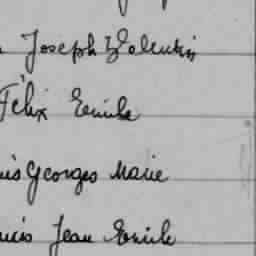 Joseph Valentin
Félix Emile
Georges Marie
Jean Emile